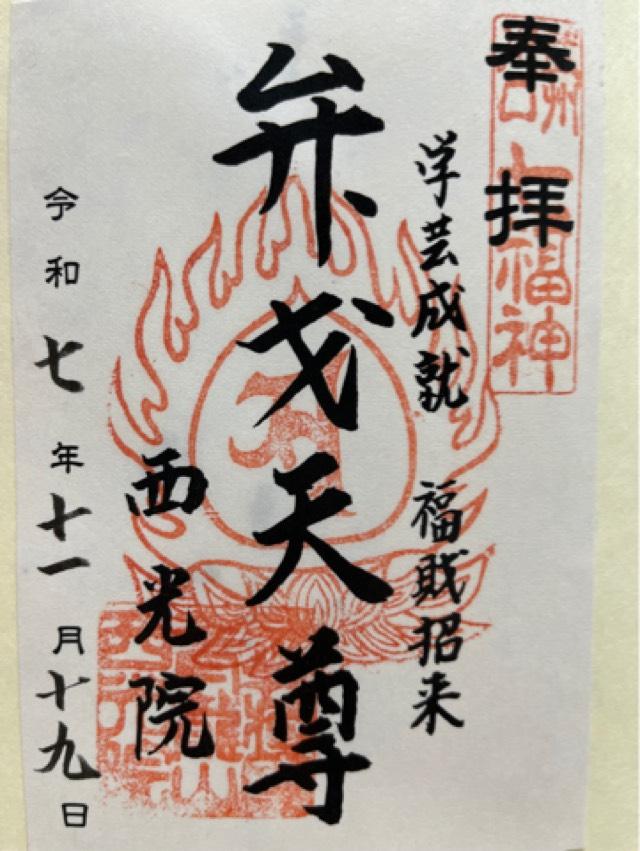 奉拝
福神
学芸成就 福財招来
弁才天尊
西光院
令和七年十一月十九日